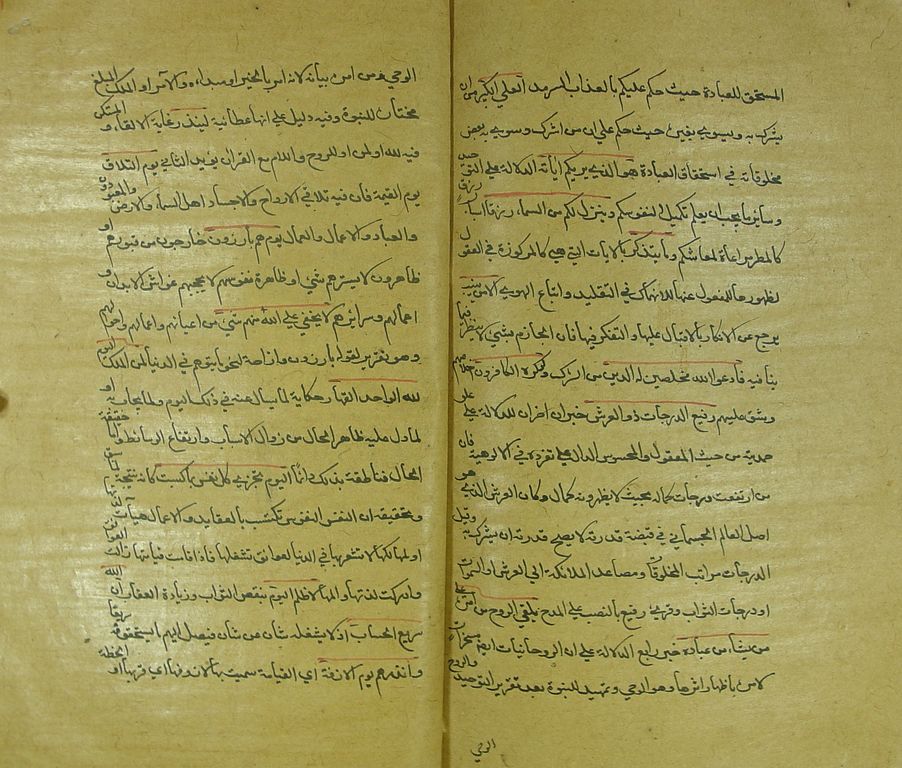 المستحق للعبادة حيث حكم عليكم بالعذاب السرمد العلي الكبير من ان
يشرك به ويسوي بغيره حيث حكم على ان من اشرك وسوي به بعض
مخلوقاته في استحقاق العبادة هو الذي يريكم اياته الدالة على التوحيد
وسائر ما يجب ان يعلم تكميلا لنفوسكم وينزل لكم من السماء رزقا اسباب رزق
كالمطر مراعاة لمعاشكم وما يتذكر بالايات التي هي كالمركوزة في العقول
لظهورها المغفول عنها للانهماك في التقليد واتباع الهوى الا من ينيب
يرجع عن الانكار بالاقبال عليها والتفكر فيها فان الجازم بشئ لا ينظر فيما
ينافيه فادعوا الله مخلصين له الدين من الشرك ولو كره الكافرون اخلاصكم
وشق عليهم رفيع الدرجات ذو العرش خبران اخران للدلالة على علو
صمديته من حيث المعقول والمحسوس الدال على تفرده في الالوهية فان
من ارتفعت درجات كماله بحيث لا يظهر دونه كمال وكان العرش الذي هو
اصل العالم الجسماني في قبضة قدرته لا يصح قدرته ان يشرك به وقيل
الدرجات مراتب المخلوقات ومصاعد الملائكة الى العرش او السموات
او درجات الثواب وقرئ رفيع بالنصب على المدح يلقي الروح من امره على
من يشاء من عباده خبر رابع للدلالة على ان الروحانيات ايضا مسخرات
لامره باظهار اثرها وهو الوحي وتمهيد للنبوة بعد تقرير التوحيد والروح
الوحي
الوحي ومن امره بيانه لانه امر بالخير او مبداءه والامر او الملك المبلغ
مختار للنبوة وفيه دليل على انها عطائية لينذر غاية الالقاء والمستكن
فيه لله او لمن او للروح واللام مع القرب يؤيد الثاني يوم التلاق
يوم القيمة فان فيه تتلاقى الارواح والاجساد اهل السماء والارض والمعبودون
والعباد او الاعمال والعمال يوم هم بارزون خارجون من قبورهم او
ظاهرون لا يسترهم شئ او ظاهرة نفوسهم لا يحجبهم غواش الابدان او
اعمالهم وسرائرهم لا يخفى على الله منهم شئ من اعيانهم واعمالهم واحوالهم
وهو تقرير لقوله بارزون وازاحة لنحو ما يتوهم في الدنيا لمن الملك اليوم
لله الواحد القهار حكاية لما يسأل عنه في ذلك اليوم ولما يجاب به او
لما دل عليه ظاهر الحال من زوال الاسباب وارتفاع الوسائط واما حقيقة
الحال فناطقة بذلك دائما اليوم تجزى كل نفس بما كسبت كانه نتيجة لما سبق
وتحقيقه ان النفوس تكتسب بالعقايد والاعمال هيات
او لمها لكنها لا تشعر بها في الدنيا لعوائق تشغلها فاذا قامت قيامتها زالت العوائق
وادركت لذتها والمها لا ظلم اليوم بنقص الثواب وزيادة العقاب ان الله
سريع الحساب اذ لا يشغله شان عن شان فيصل اليهم ما يستحقونه سريعا
وانذرهم يوم الازفة اي القيامة سميت بها لازوفها اي قربها او الخطة